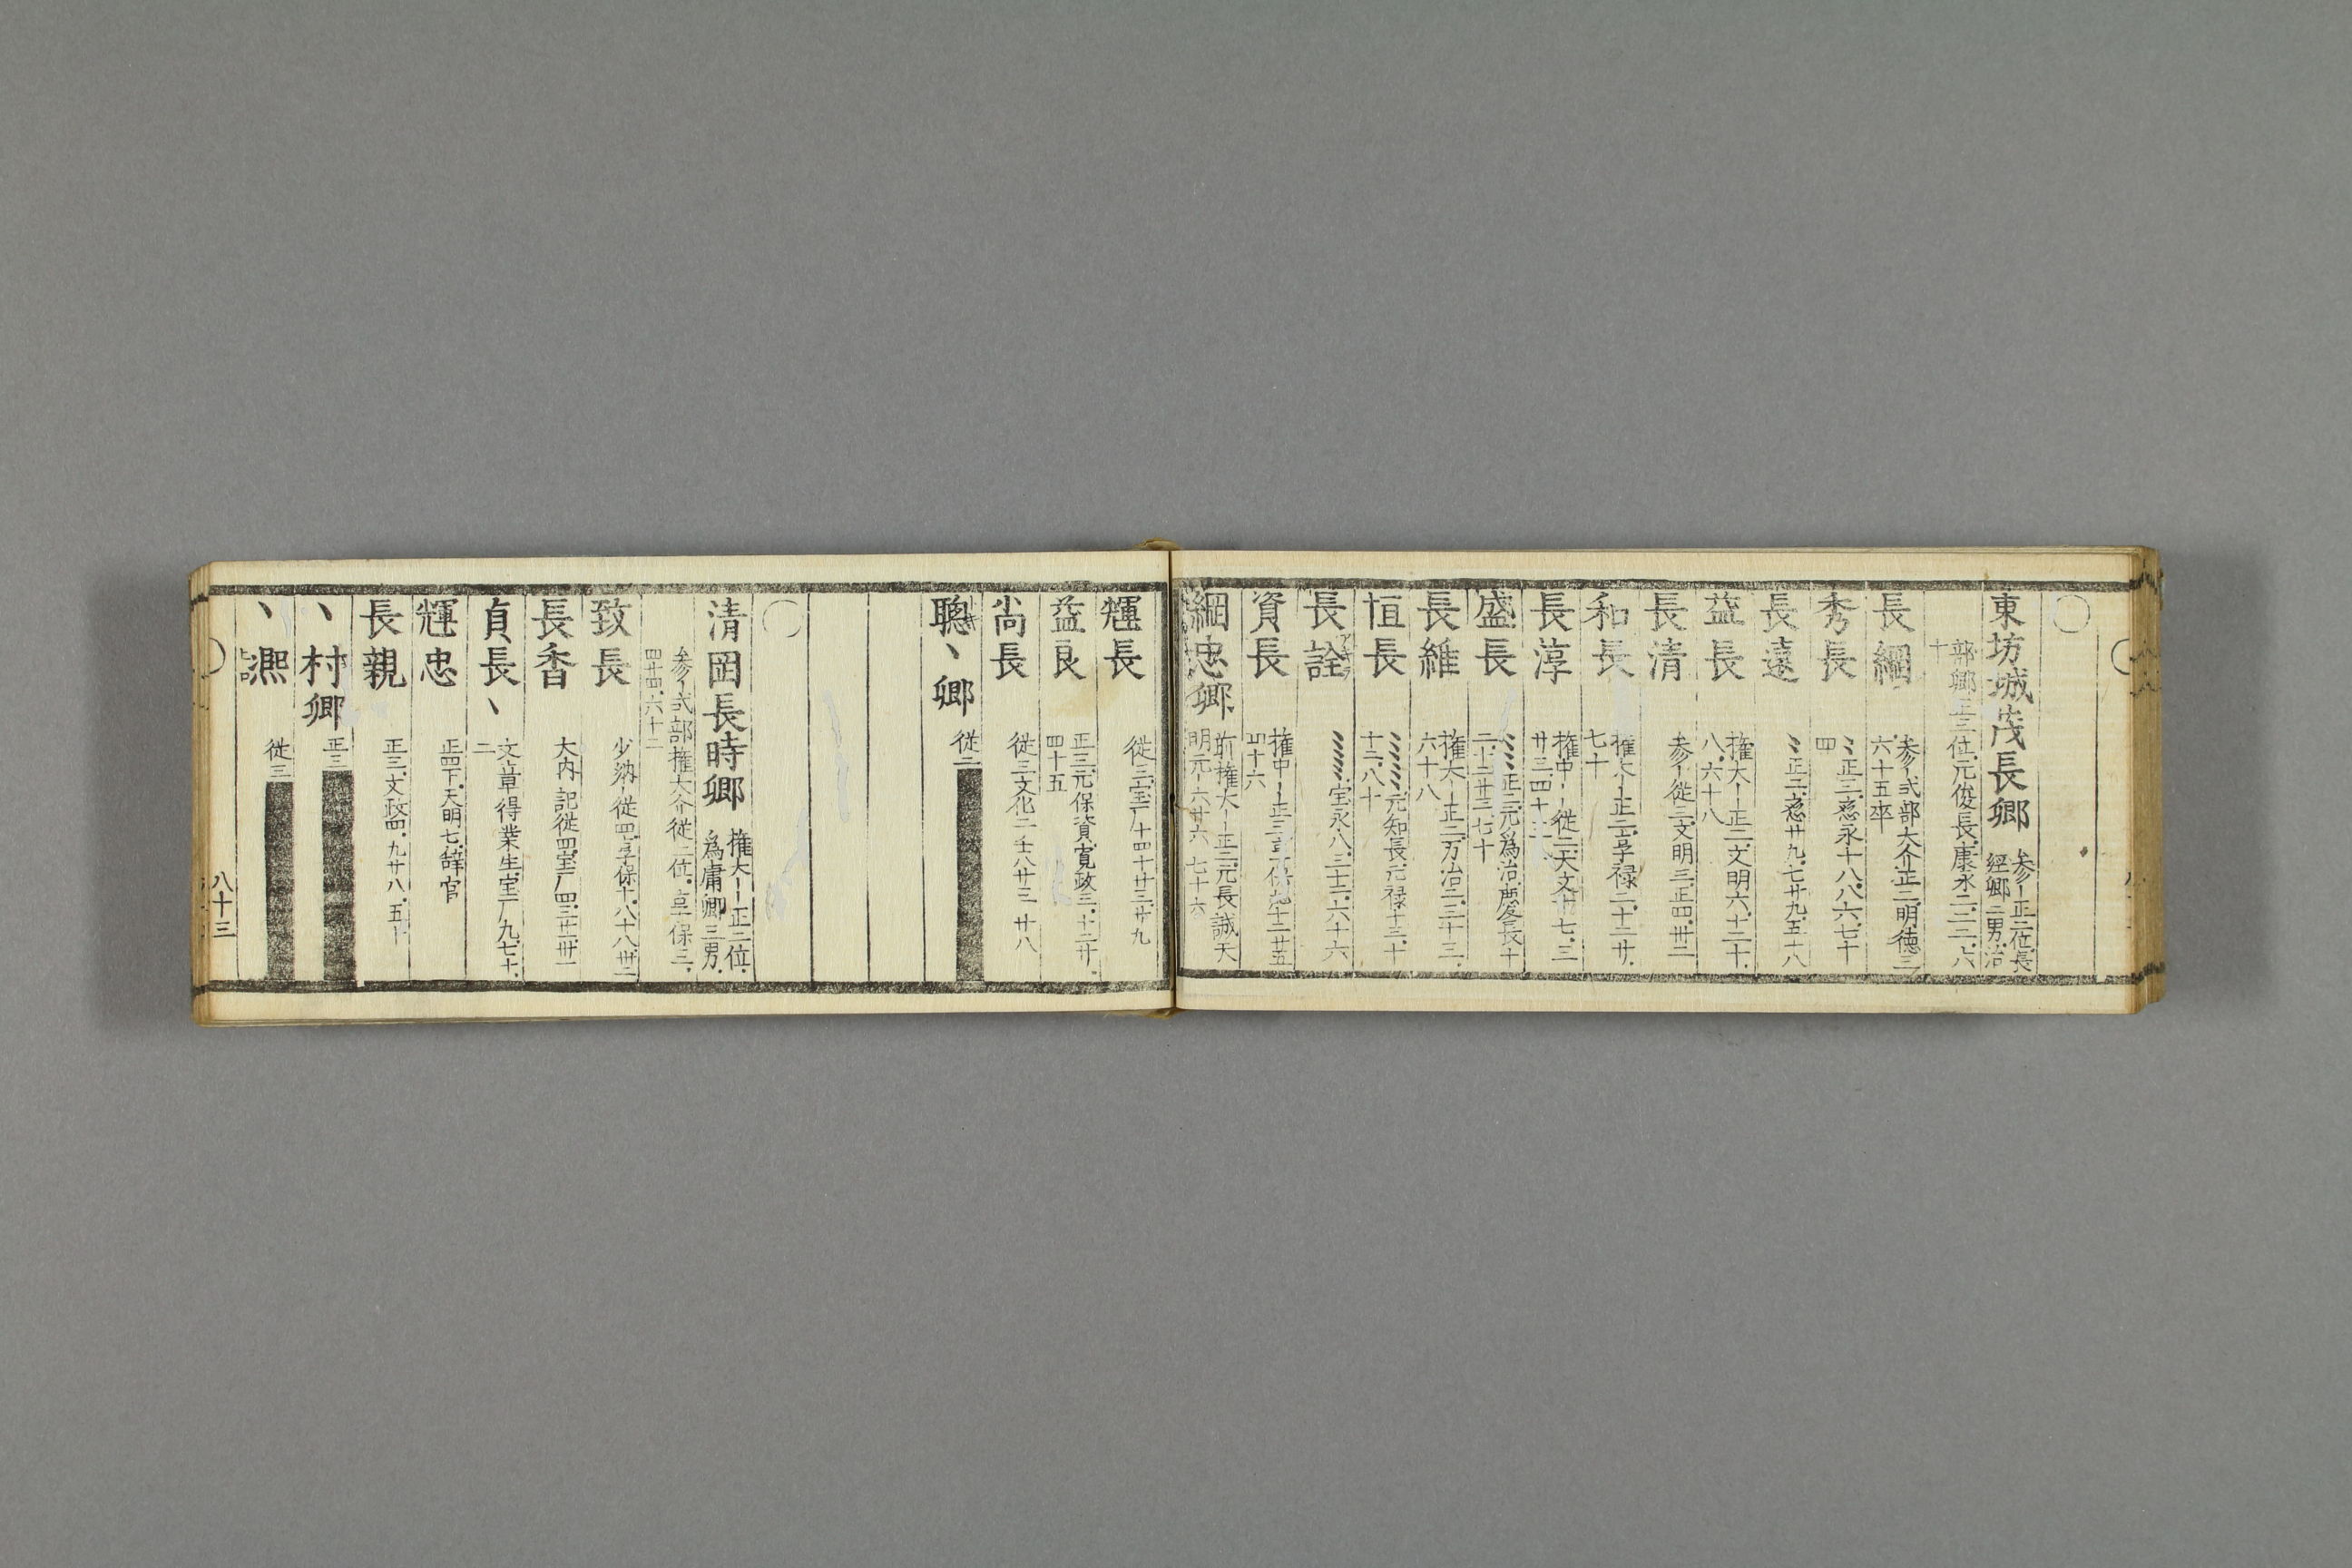 東坊城茂長卿 参ー正二位長
經卿二男治
部卿正三位元俊長康永二二六
十
長綱 参ー式部大介正二明徳三
六十五卒
秀長 〻正三應永十八八六七十
四
長遠 〻正二應廿九七廿九五十八
益長 権大ー正二文明六十二十
八六十八
長清 参ー従三文明三正四卅二
和長 権大ー正二享禄二十二廿
七十
長淳 権中ー従二天文十七三
廿三四十
盛長 正二元為治慶長十
二十二廿三七十
長維 権大ー正二万治二三十三
六十八
恒長 元知長元禄十三十
十二八十
長詮 宝永八三十二六十六
資長 権中ー正三十二廿五
四十六
綱忠卿 前権大ー正二元長誠天
明元六廿六 七十六
輝長 従三宝厂十四十廿三廿九
益良 正三元保資寛政三十二廿
四十五
尚長 従三文化二壬八廿三 廿八
聰丶卿 従二
○
清岡長時卿 権大ー正二位
為庸卿三男
参ー式部権大介従二位享保三
四廿四六十二
致長 少納ー従四享保十八十八卅二
長香 大内記従四宝厂四三廿卅一
貞長丶 文章得業生宝厂九七十
二
輝忠 正四下天明七辞官
長親 正三文政四九廿八五十
丶村卿 正三
丶凞 従三
八十三